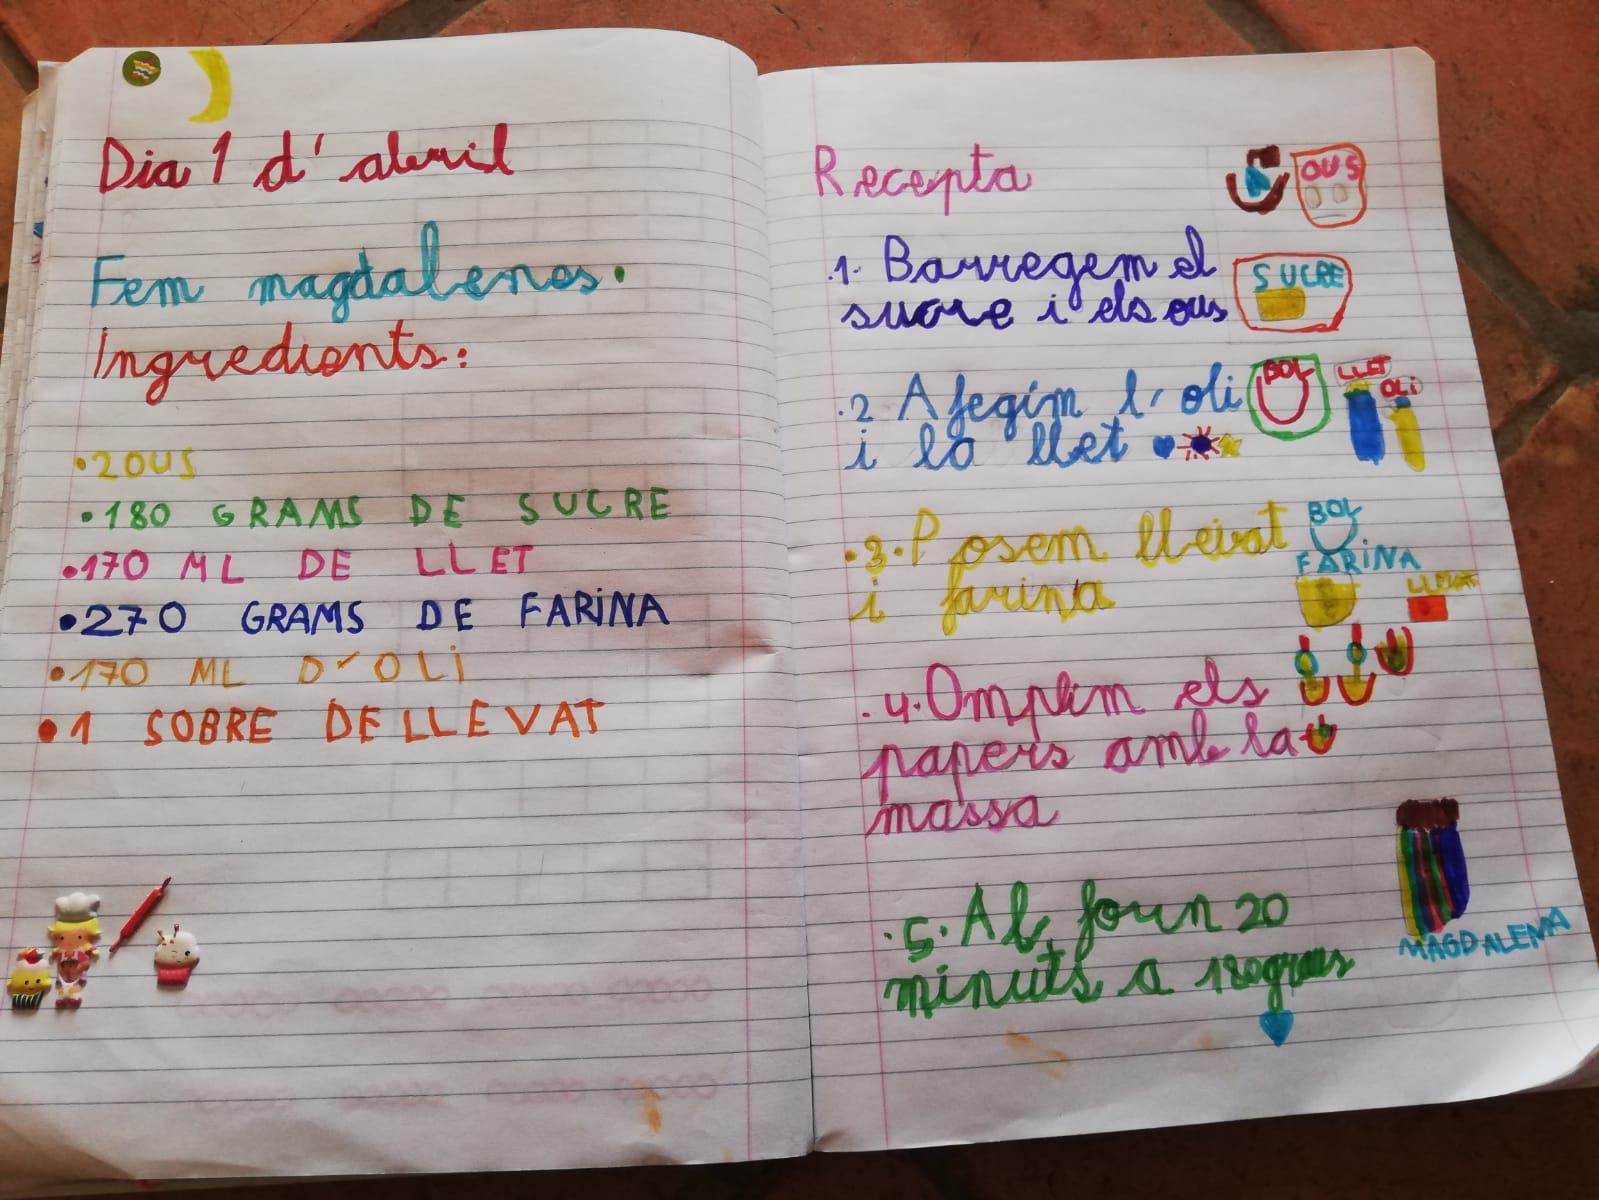 Dia 1 d'abril
Fem magdalenes.
Ingredients:
•2 OUS
•180 GRAMS DE SUCRE
•170 ML DE LLET
•270 GRAMS DE FARINA
•170 ML D'OLI
•1 SOBRE DE LLEVAT
Recepta
OUS
.1. Barregem el
sucre i els ous
SUCRE
.2 Afegim l'oli
i la llet
BOL
LLET
OLI
.3. Posem llevat
i farina
BOL
FARINA
.4. Omplim els
papers amb la
massa
.5. Al forn 20
minuts a 180 graus
MAGDALENA